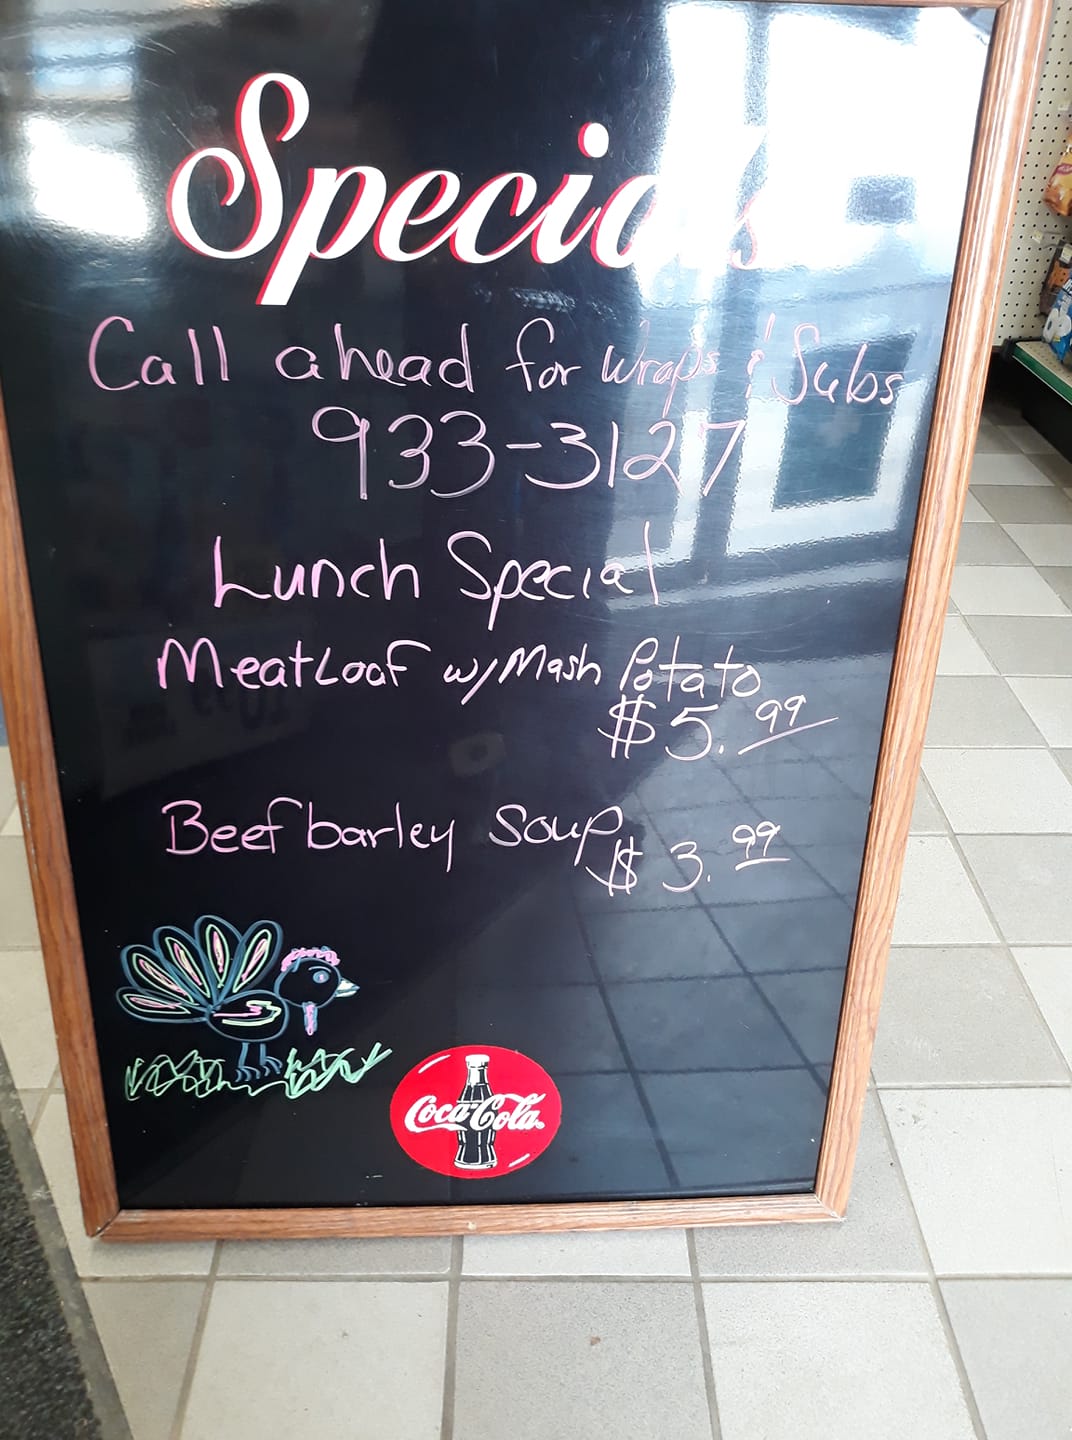 Specials
Call ahead for Wraps & Subs
933-3127
Lunch Special
Meatloaf w/Mash Potato
$5.99
Beef barley soup $3.99
Coca-Cola